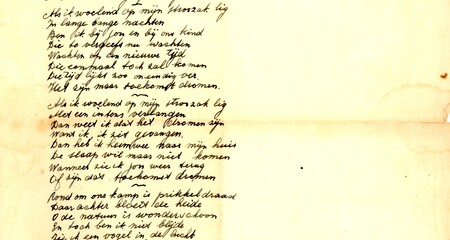 Als ik woelend op mijn stroozak lig
In lange bange nachten
Ben ik bij jou en bij ons kind
Die te vergeefs nu wachten
Wachten op een nieuwe tijd
Die eenmaal toch zal komen
Die tijd lijkt zoo oneindig ver.
Het zijn maar toekomst dromen.
Als ik woelend op mijn stroozak lig
Met een intens verlangen
Dan weet ik dat het dromen zijn
Want ik, ik zit gevangen.
Dan heb ik heimwee naar mijn huis
De slaap wil maar niet komen
Wanneer zie ik jou weer terug
Of zijn dat toekomst dromen
Rond om ons kamp is prikkeldraad
Daar achter bloeit de heide
O de natuur is wonderschoon
En toch ben ik niet blijde
Zie ik een vogel in de lucht